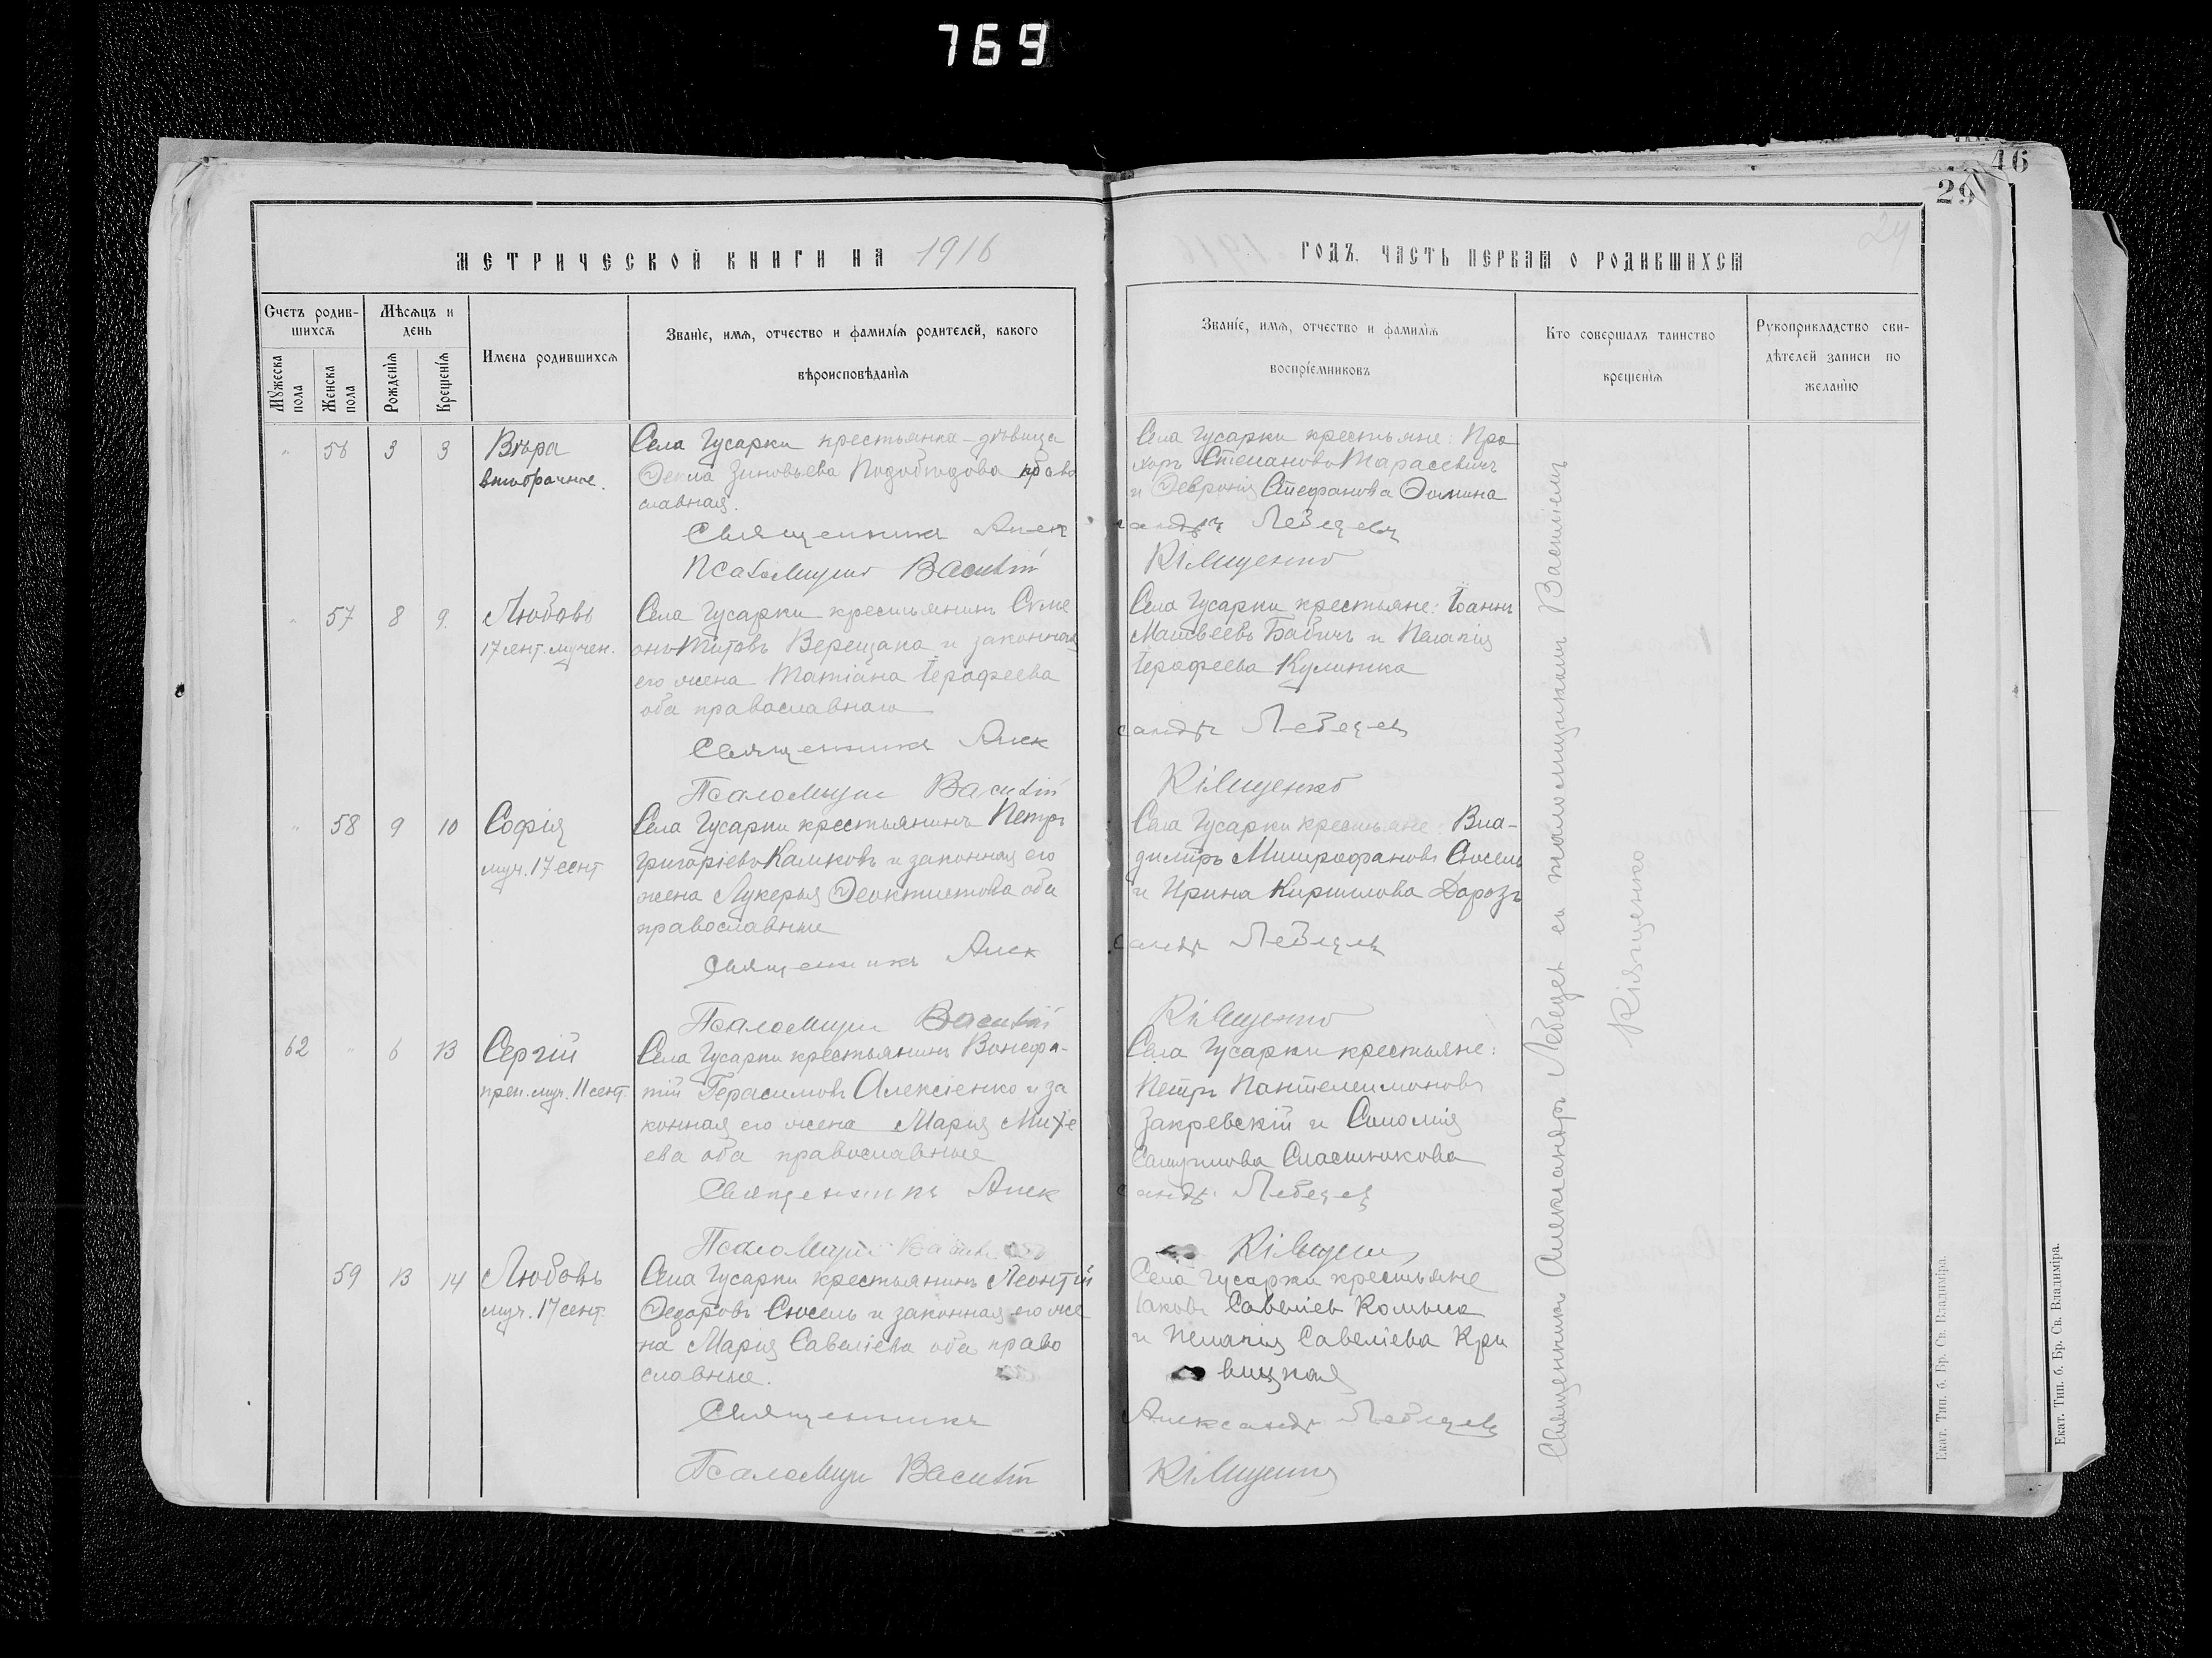 769
46
29
24
МЕТРИЧЕСКОЙ КНИГИ НА 1916
ГОДЪ. ЧАСТЬ ПЕРВАЯ О РОДИВШИХСЯ
Счетъ родив-
шихся
Мужеска пола
Женска пола
Мѣсяцъ и
день
Рожденія
Крещенія
Имена родившихся
Званіе, имя, отчество и фамилія родителей, какого
вѣроисповѣданія
Званіе, имя, отчество и фамилія
воспріемниковъ
Кто совершалъ таинство
крещенія
Рукоприкладство сви-
дѣтелей записи по
желанію
" 56 3 3
Вѣра
внѣбрачное.
Села Гусарки крестьянка-дѣвица
Ѳекла Зиновьева православная.
Священникъ Алек
Псаломщикъ Василій
Села Гусарки крестьяне: Про
хоръ Стефановъ Тарасевичъ
и Ѳевронія Стефанова Ѳомина
сандръ Лебедевъ
Кіященко
" 57 8 9.
Любовь
17 сент. мучен.
Села Гусарки крестьянинъ Симе
онъ Титовъ Верещака и законная
его жена Татіана Іерофеева
оба православнаго
Священникъ Алек
Псаломщикъ Василій
Села Гусарки крестьяне: Іоаннъ
Матвѣевъ Бабичъ и Пелагія
Іерофеева Кулишка
сандръ Лебедевъ
Кіященко
" 58 9 10
Софія
муч. 17 сент
Села Гусарки крестьянинъ Петръ
Григоріевъ Калиховъ и законная его
жена Лукерья Ѳеоктистова оба
православные
Священникъ Алек
Псаломщикъ Василій
Села Гусарки крестьяне: Вла-
димиръ Митрофановъ Сюсель
и Ирина Кириллова Дорозъ
сандръ Лебедевъ
Кіященко
62 " 6 13
Сергій
преп. муч. 11 сент.
Села Гусарки крестьянинъ Вонифа-
тій Герасимовъ Алексіенко и за
конная его жена Марія Михе
ева оба православные
Священникъ Алек
Псаломщикъ
Села Гусарки крестьяне:
Петръ Пантелеимоновъ
Закревскій и Соломія
Самуилова Сластюкова
сандръ Лебедевъ
Кіященко
59 13 14
Любовь
муч. 17 сент.
Села Гусарки крестьянинъ Леонтій
Ѳедоровъ Сюсель и законная его же
на Марія Савеліева оба право
славные.
Священникъ
Псаломщикъ Василій
Села Гусарки крестьяне
Іаковъ Савеліев
и Пелагія Савеліева Кри
вицкая
Александръ Лебедевъ
Кіященко
Священникъ Александръ Лебедев съ псаломщикомъ Василіемъ
Кіященко
Екат. Тип. б. Бр. Св. Владиміра.
Екат. Тип. б. Бр. Св. Владиміра.